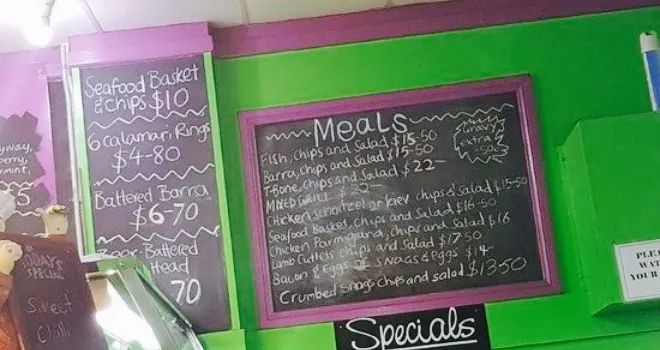 Seafood Basket
& chips $10
6 calamari Rings
$4-80
Battered Barra
$6-70
Beer-Battered
Head
70
Meals
Gravy
extra
-50
Fish, chips and Salad $15-50
Barra, chips and Salad $15-50
T-Bone, chips and Salad $22-
MIXED GRILL $22-
Chicken schnitzel or kiev chips & Salad $15-50
Seafood Basket, chips and Salad $16-50
Chicken Parmigiana, chips and Salad $16
Lamb Cutlets chips and Salad $17-50
Bacon & Eggs or SNAGS & Eggs $14-
Crumbed Snags chips and salad $13-50
Specials
TODAYS
SPECIAL
Sweet
Chilli
PLE
WAT
YOUR